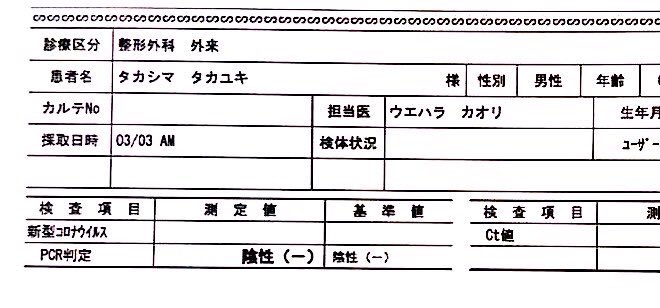 診療区分 整形外科 外来
患者名 タカシマ タカユキ 様 性別 男性 年齢
カルテNo 担当医 ウエハラ カオリ 生年月
採取日時 03/03 AM 検体状況 ユーザー
検査項目 測定値 基準値 検査項目 測
新型コロナウイルス Ct値
PCR判定 陰性(-) 陰性(-)